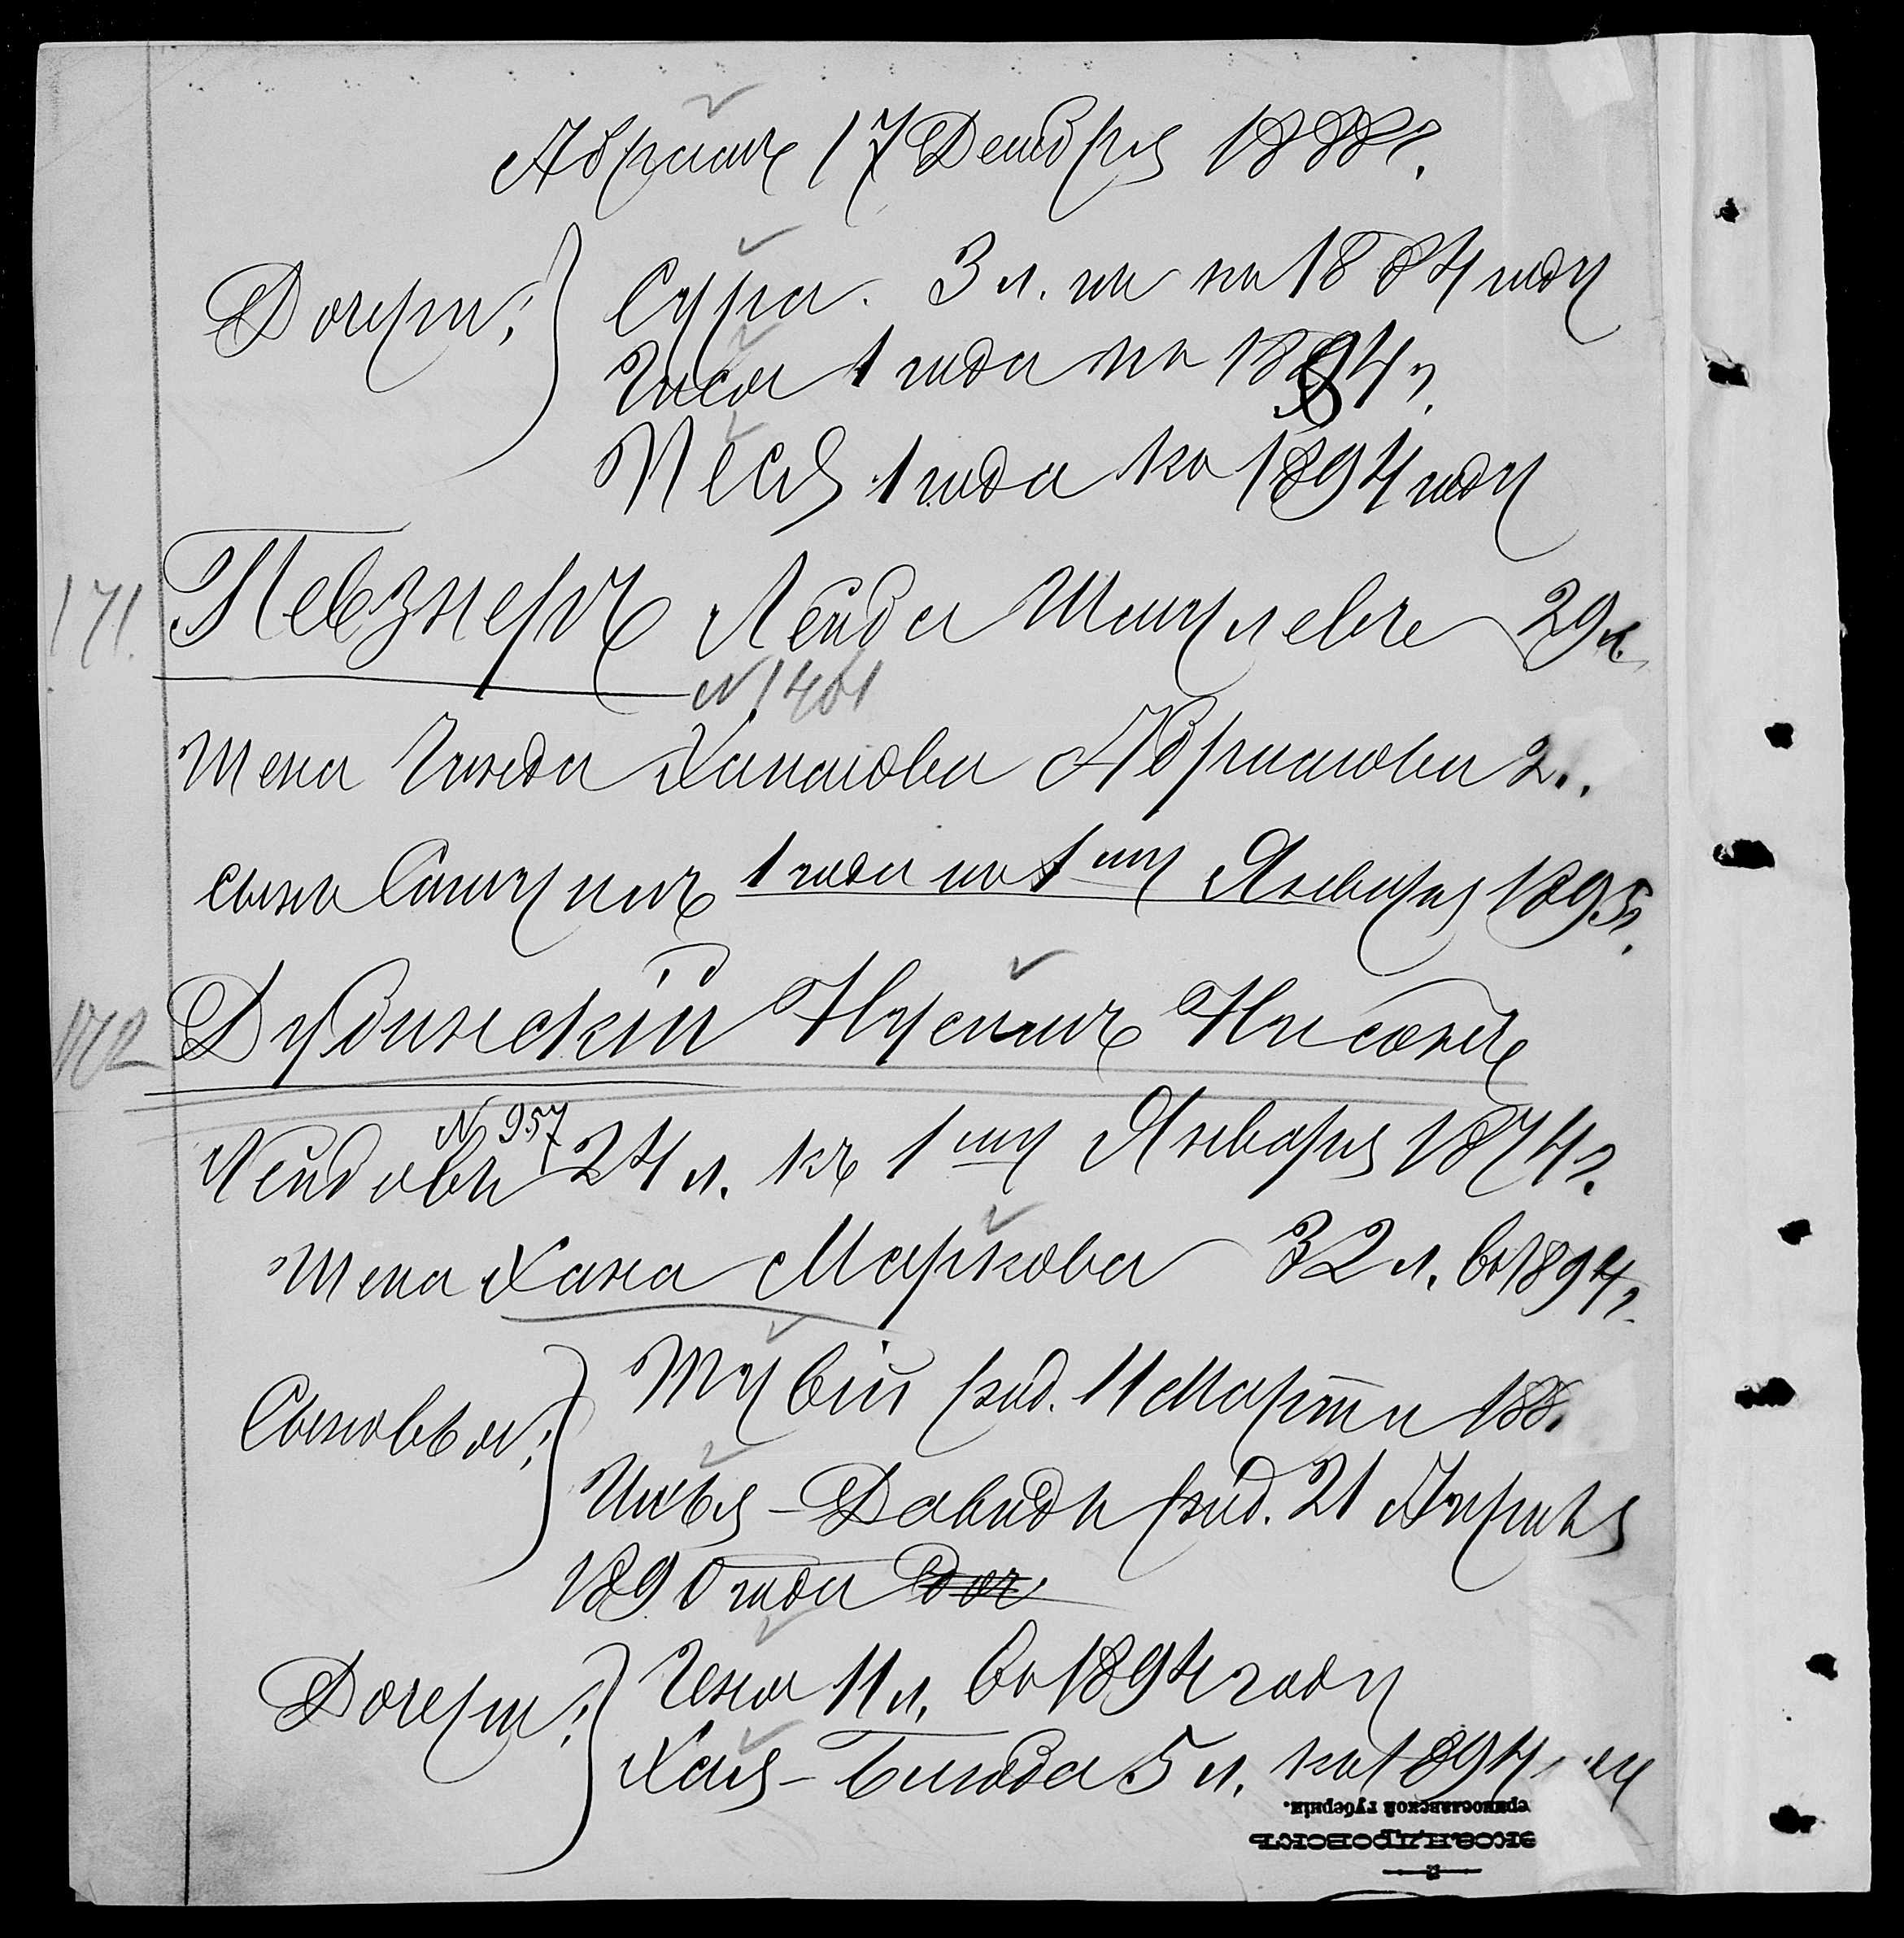 Абрамъ 17 Декабря 1888 г.
Дочери: Сура 3 л. къ 1884 году
1 года къ 1894 г.
Песя 1 года къ 1894 году
171. Певзнеръ Лейба Шмулевъ 29 л.
N 1461
Жена Гинда Хаимова Абрамова 2
сынъ Самуилъ 1 года къ 1му Января 1895 г.
172 Дубинскій Нусимъ Нисонъ
N 957
Лейбовъ 24 л. къ 1му Января 1874 г.
Жена Хана Маркова 32 л. въ 1894 г.
Сыновья: Тувій род. 11 Марта 188
Давидъ род. 21 Апрѣля
1890 года Доч
Дочери: Геня 11 л. въ 1894 году
Хая-Блюма 5 л. къ 1894
еринославской губерніи.
ександровскъ